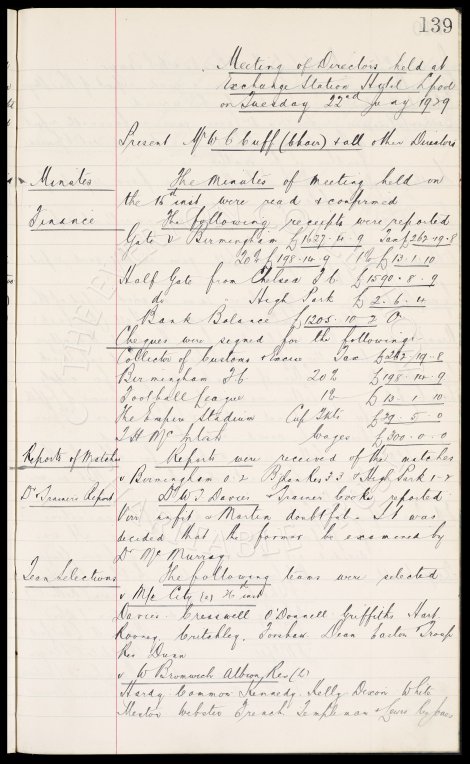 139
Meeting of Directors held at
Exchange Station Hotel L'pool
on Tuesday 22nd 1929
Present Mr W C Cuff (Chair) & all other Directors
Minutes The Minutes of meeting held on
the 16th inst were read & confirmed
Finance The following receipts were reported
Gate v Birmingham £1627.14.9 Tax £262.19.8
20% £198.14.9 1% £13.1.10
Half Gate from Chelsea F.C. £1590.8.9
do High Park £2.6.4
Bank Balance £1205.10.2
Cheques were signed for the following
Collector of Customs & Excise Tax £262.19.8
Birmingham F C 20% £198.14.9
Football League 1% £13.1.10
The Empire Stadium Cup Tkts £29.5.0
T H Mc Wages £300.0.0
Reports of Matches Reports were received of the matches
v Birmingham 0-2 B'ham Res 3-3 & High Park 1-2
Dr & Trainers Report Dr W J Davies & Trainer Cooke reported
Virr unfit & Martin doubtful. It was
decided that the former be examined by
Dr Mc Murray
Team Selections The following teams were selected
v M/c City (a) 26th inst
Davies Cresswell O'Donnell Griffiths Hart
Rooney Critchley, Forshaw Dean Easton & Troup
Res Dunn
v W Bromwich Albion Res (h)
Hardy Common Kennedy Kelly Dixon White
Meston Webster French Templeman & Lewis